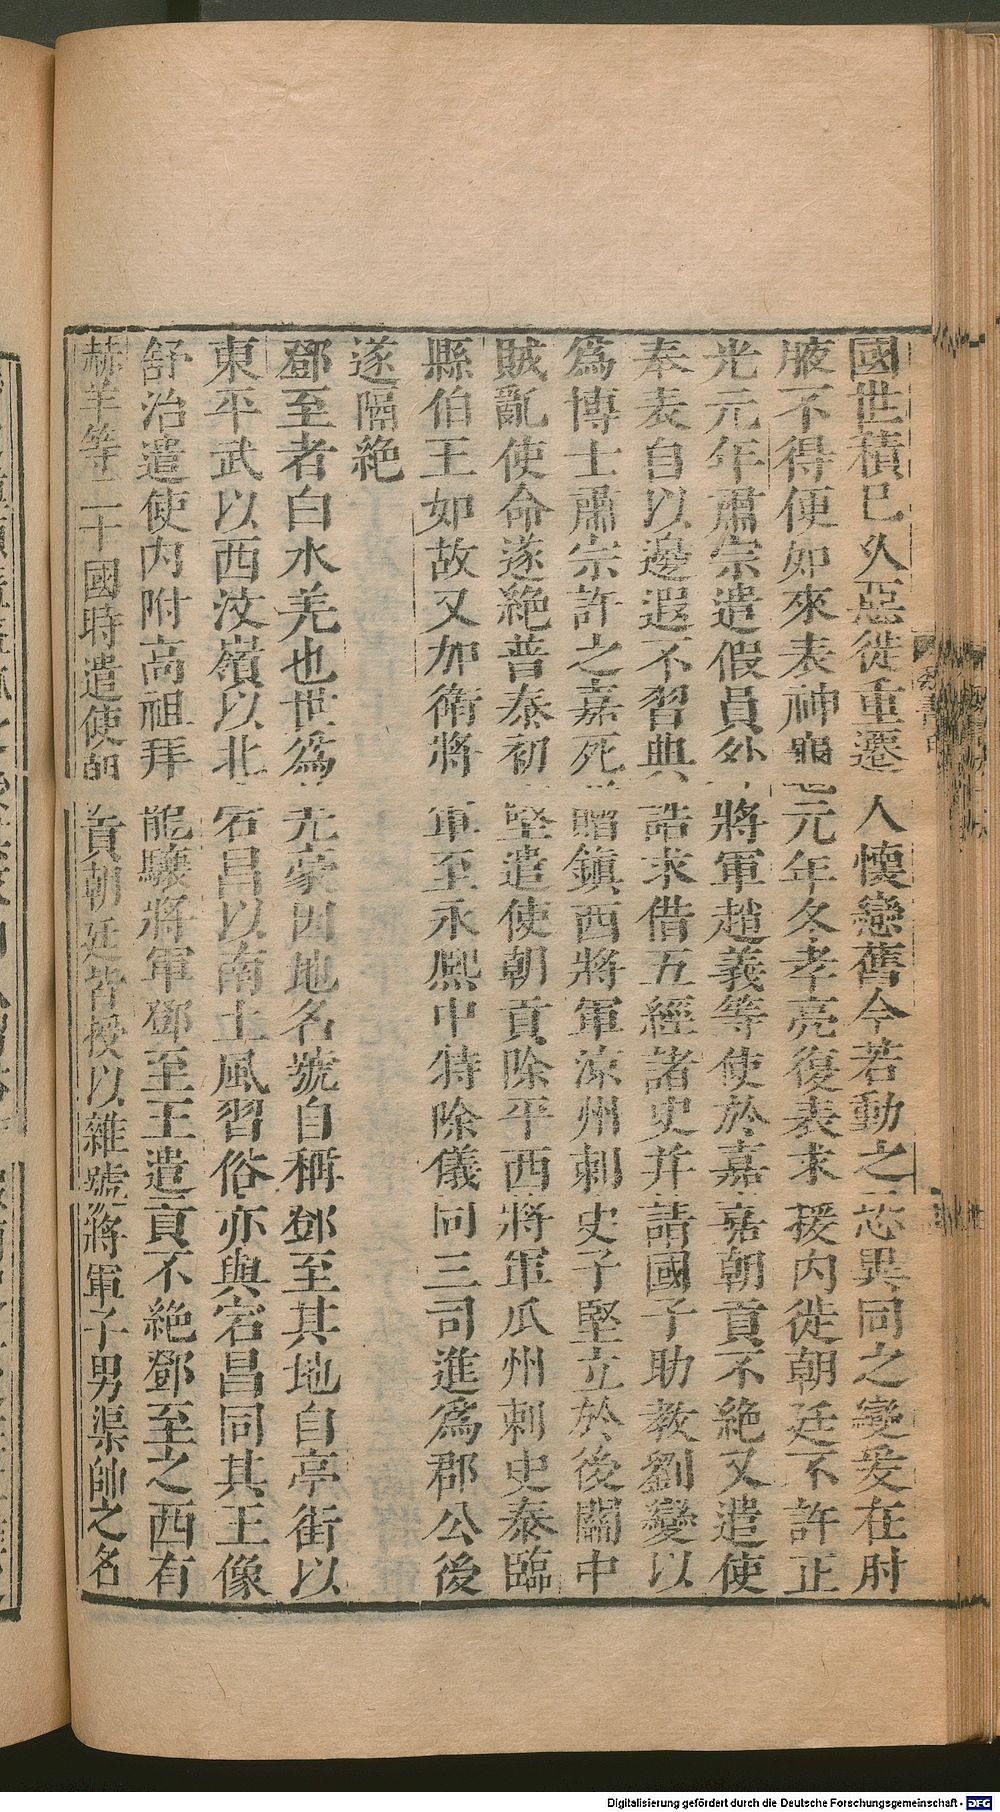 國世積已久惡徙重遷人懷戀舊今若動之恐異同之變爰在肘
腋不得便如來表神龜元年冬孝亮復表求援內徙朝廷不許正
光元年肅宗遣假員外將軍趙義等使於嘉嘉朝貢不絕又遣使
奉表自以邊遐不習典誥求借五經諸史并請國子助教劉變以
爲博士肅宗許之嘉死贈鎮西將軍涼州刺史子堅立於後關中
賊亂使命遂絕普泰初堅遣使朝貢除平西將軍瓜州刺史泰臨
縣伯王如故又加衛將軍至永熙中特除儀同三司進爲郡公後
遂隔絕
鄧至者白水羌也世爲羌豪因地名號自稱鄧至其地自亭街以
東平武以西汶嶺以北宕昌以南土風習俗亦與宕昌同其王像
舒治遣使內附高祖拜龍驤將軍鄧至王遣貢不絕鄧至之西有
赫羊等二十國時遣使朝貢朝廷皆授以雜號將軍子男渠帥之名
Digitalisierung gefördert durch die Deutsche Forschungsgemeinschaft - DFG